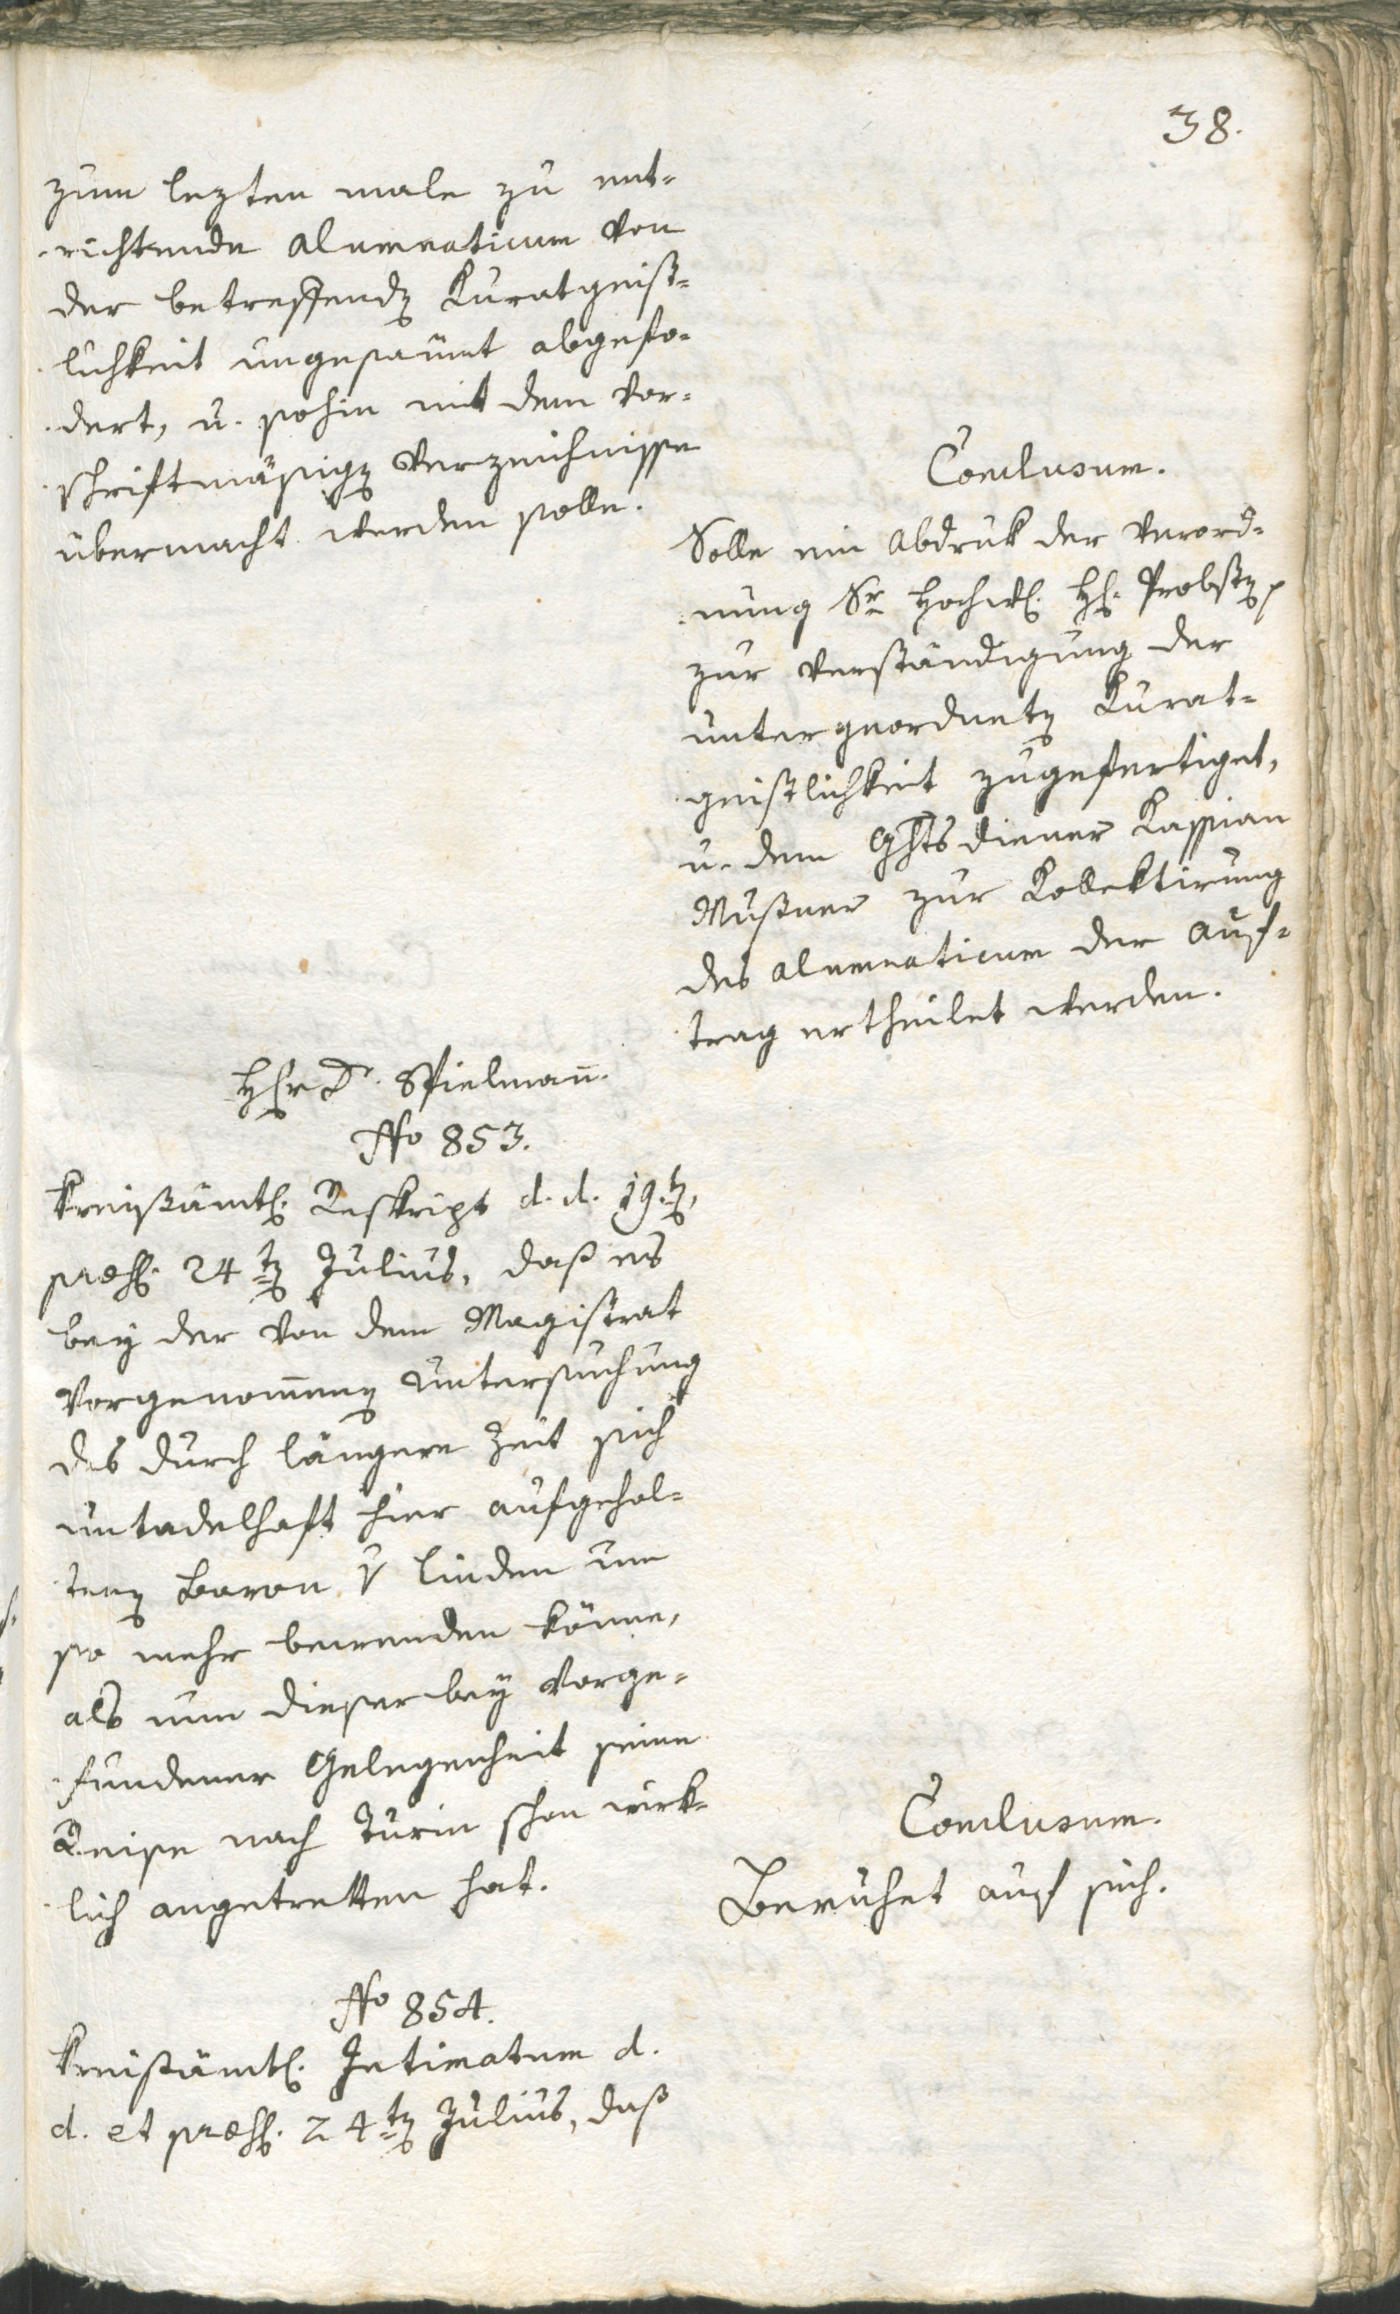 38.
zum lezten male zu ent-
richtende Alumnaticum von
der betreffenden Kuratgeist-
lichkeit ungesäumt abgefo-
dert, u. sohin mit dem vor-
schriftmäsigen Verzeichnisse
übermacht werden solle.
Conclusum.
Solle ein Abdruk der Verord-
nung Sr Hochw. H. Probsten
zur Verständigung der
untergeordneten Kurat-
geistlichkeit zugefertiget,
u. dem Ghtsdiener Kassian
Mußner zur Kollektirung
des Alumnaticum der Auf-
trag ertheilet werden.
Hr Dr. Spielmañ.
No 853.
Kreisämtl. Reskript d. d. 19.ten,
præs. 24ten Julius, daß es
bey der von dem Magistrat
vorgenom̄enen Untersuchung
des durch längere Zeit sich
untadelhaft hier aufgehal-
tenen Baron v Linden um
so mehr bewenden könne,
als nun dieser bey vorge-
fundener Gelegenheit seine
Reise nach Turin schon wirk-
lich angetretten hat.
Conclusum.
Beruhet auf sich.
No 854.
Kreisämtl. Intimatum d.
d. et præs. 24ten Julius, daß